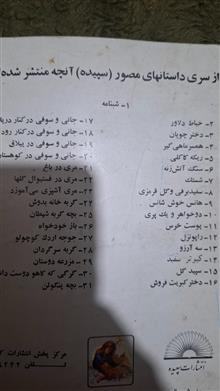 از سری داستانهای مصور (سپیده) آنچه منتشر شده:
۱- شبنامه
۲- خیاط دلاور
۳- دختر چوپان
۴- همسر ماهی‌گیر
۵- ریکه کاکلی
۶- سنگ آتش‌زنه
۷- شستک
۸- سفیدبرفی و گل قرمزی
۹- هانس خوش شانس
۱۰- دوخواهر و یک پری
۱۱- پوست خرس
۱۲- راپونزل
۱۳- سه آرزو
۱۴- کبوتر سفید
۱۵- سپید گل
۱۶- دختر کبریت فروش
۱۷- جانی و سوفی در کنار دریا
۱۸- جانی و سوفی در کنار رود
۱۹- جانی و سوفی در ییلاق
۲۰- جانی و سوفی در کوهستان
۲۱- مری در باغ
۲۲- مری در فستیوال گلها
۲۳- مری آشپزی می‌آموزد
۲۴- گربه خانه بدوش
۲۵- بچه گربه شیطان
۲۶- باز خودخواه
۲۷- جوجه اردک کوچولو
۲۸- گربه سرگردان
۲۹- مزرعه دوستان
۳۰- گرگی که کاهو دوست داشت
۳۱- بچه پنگوئن
انتشارات سپیده
مرکز پخش انتشارات